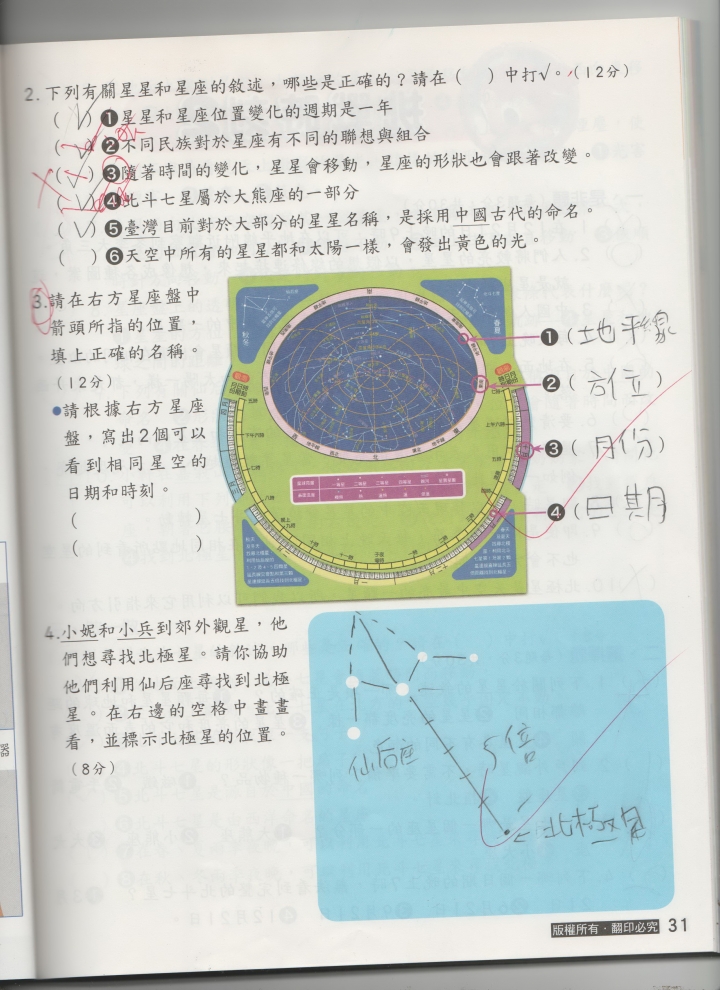 2. 下列有關星星和星座的敘述，哪些是正確的？請在（ ）中打√。(12分)
( √ ) ❶星星和星座位置變化的週期是一年
( √ ) ❷不同民族對於星座有不同的聯想與組合
( √ ) ❸隨著時間的變化，星星會移動，星座的形狀也會跟著改變。
( √ ) ❹北斗七星屬於大熊座的一部分
( √ ) ❺臺灣目前對於大部分的星星名稱，是採用中國古代的命名。
( ) ❻天空中所有的星星都和太陽一樣，會發出黃色的光。
3. 請在右方星座盤中
箭頭所指的位置，
填上正確的名稱。
(12分)
●請根據右方星座
盤，寫出2個可以
看到相同星空的
日期和時刻。
( )
( )
秋冬
春夏
❶ (地平線
❷ (方位)
❸ (月份)
❹ (日期
4. 小妮和小兵到郊外觀星，他
們想尋找北極星。請你協助
他們利用仙后座尋找到北極
星。在右邊的空格中畫畫
看，並標示北極星的位置。
(8分)
仙后座
5倍
北極星
版權所有・翻印必究 31